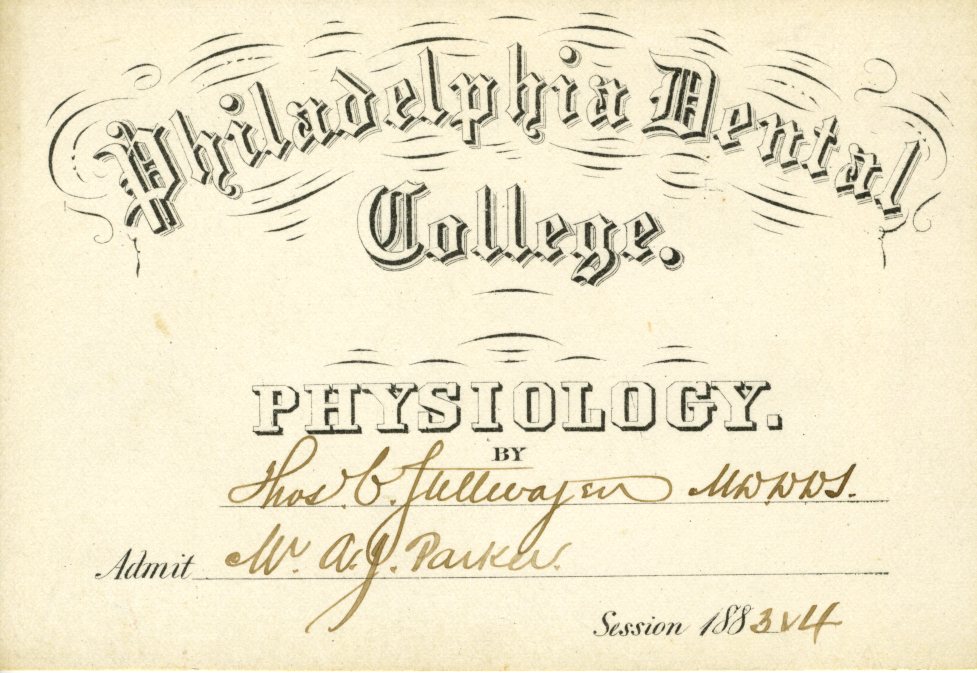 Philadelphia Dental
College.
PHYSIOLOGY.
BY
Thos. C. Stellwagen M.D., D.D.S.
Admit Mr A. J. Parker.
Session 1883 & 4